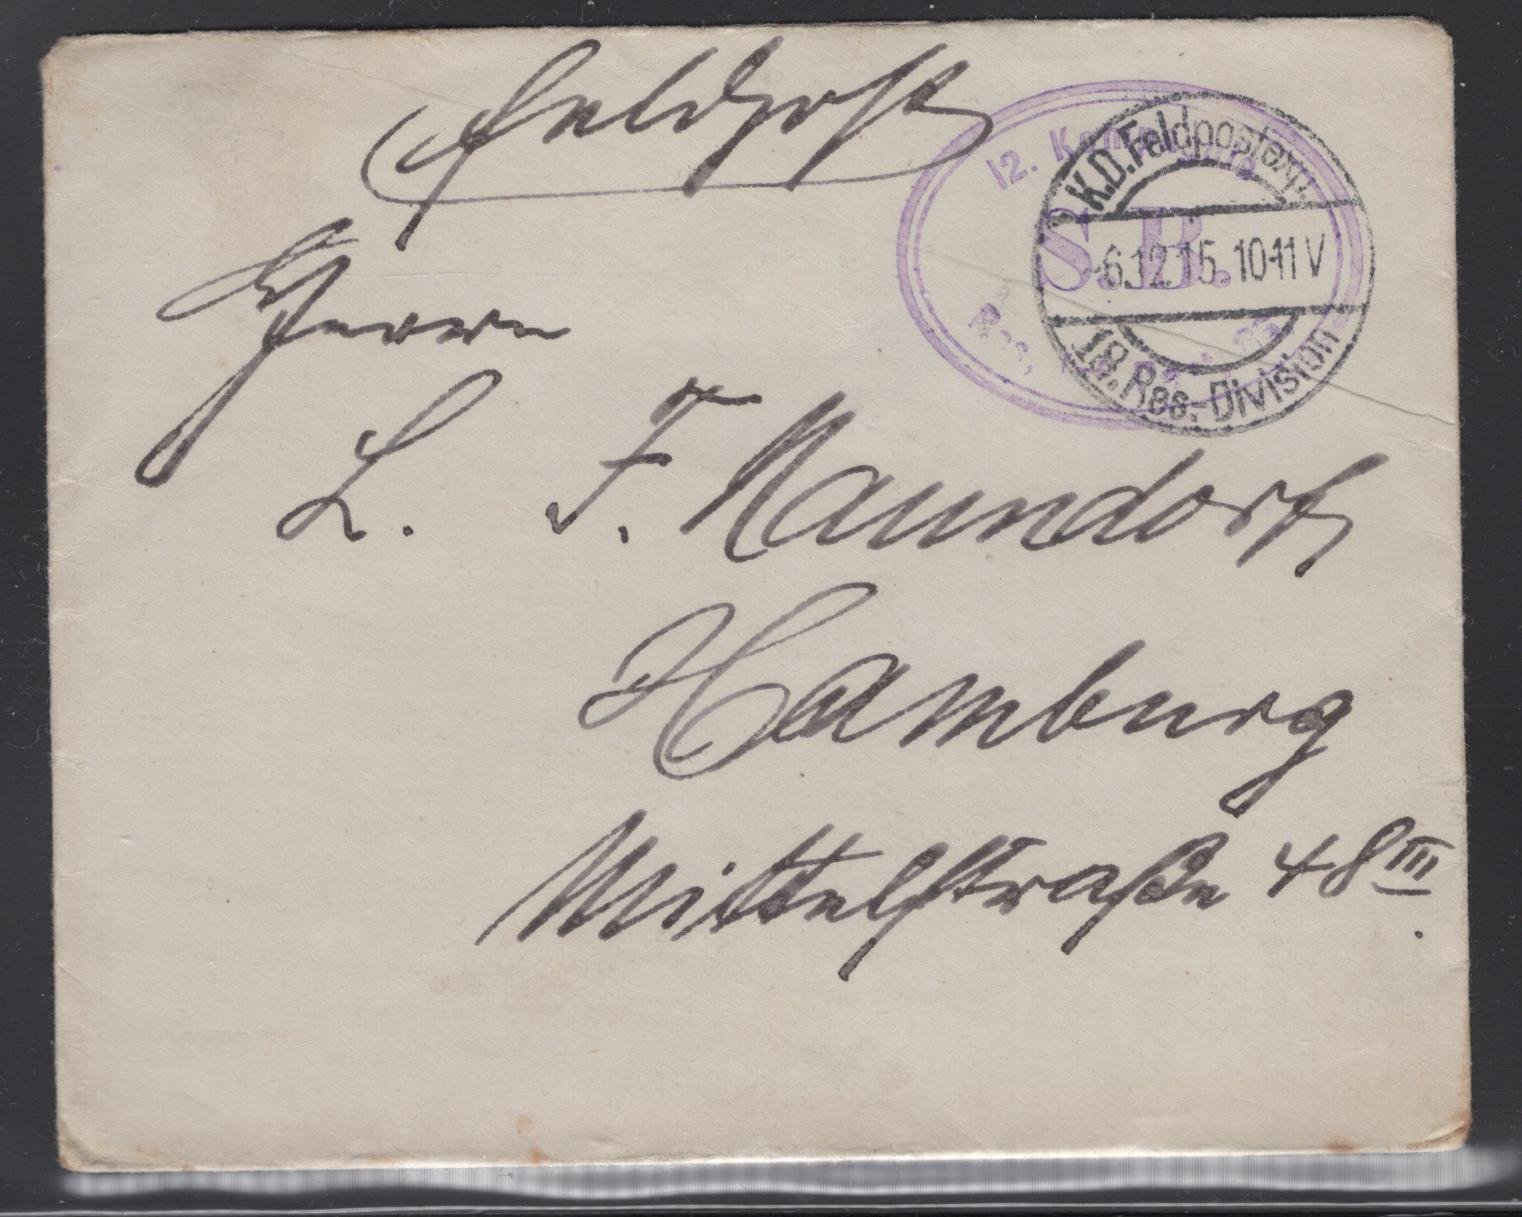 Feldpost
12. Kompagnie
S.B.
Res.
K.D. Feldpostexp.
-6.12.15. 10-11 V
18. Res.-Division
Herrn
L. F. Naundorf
Hamburg
Mittelstraße 48 III